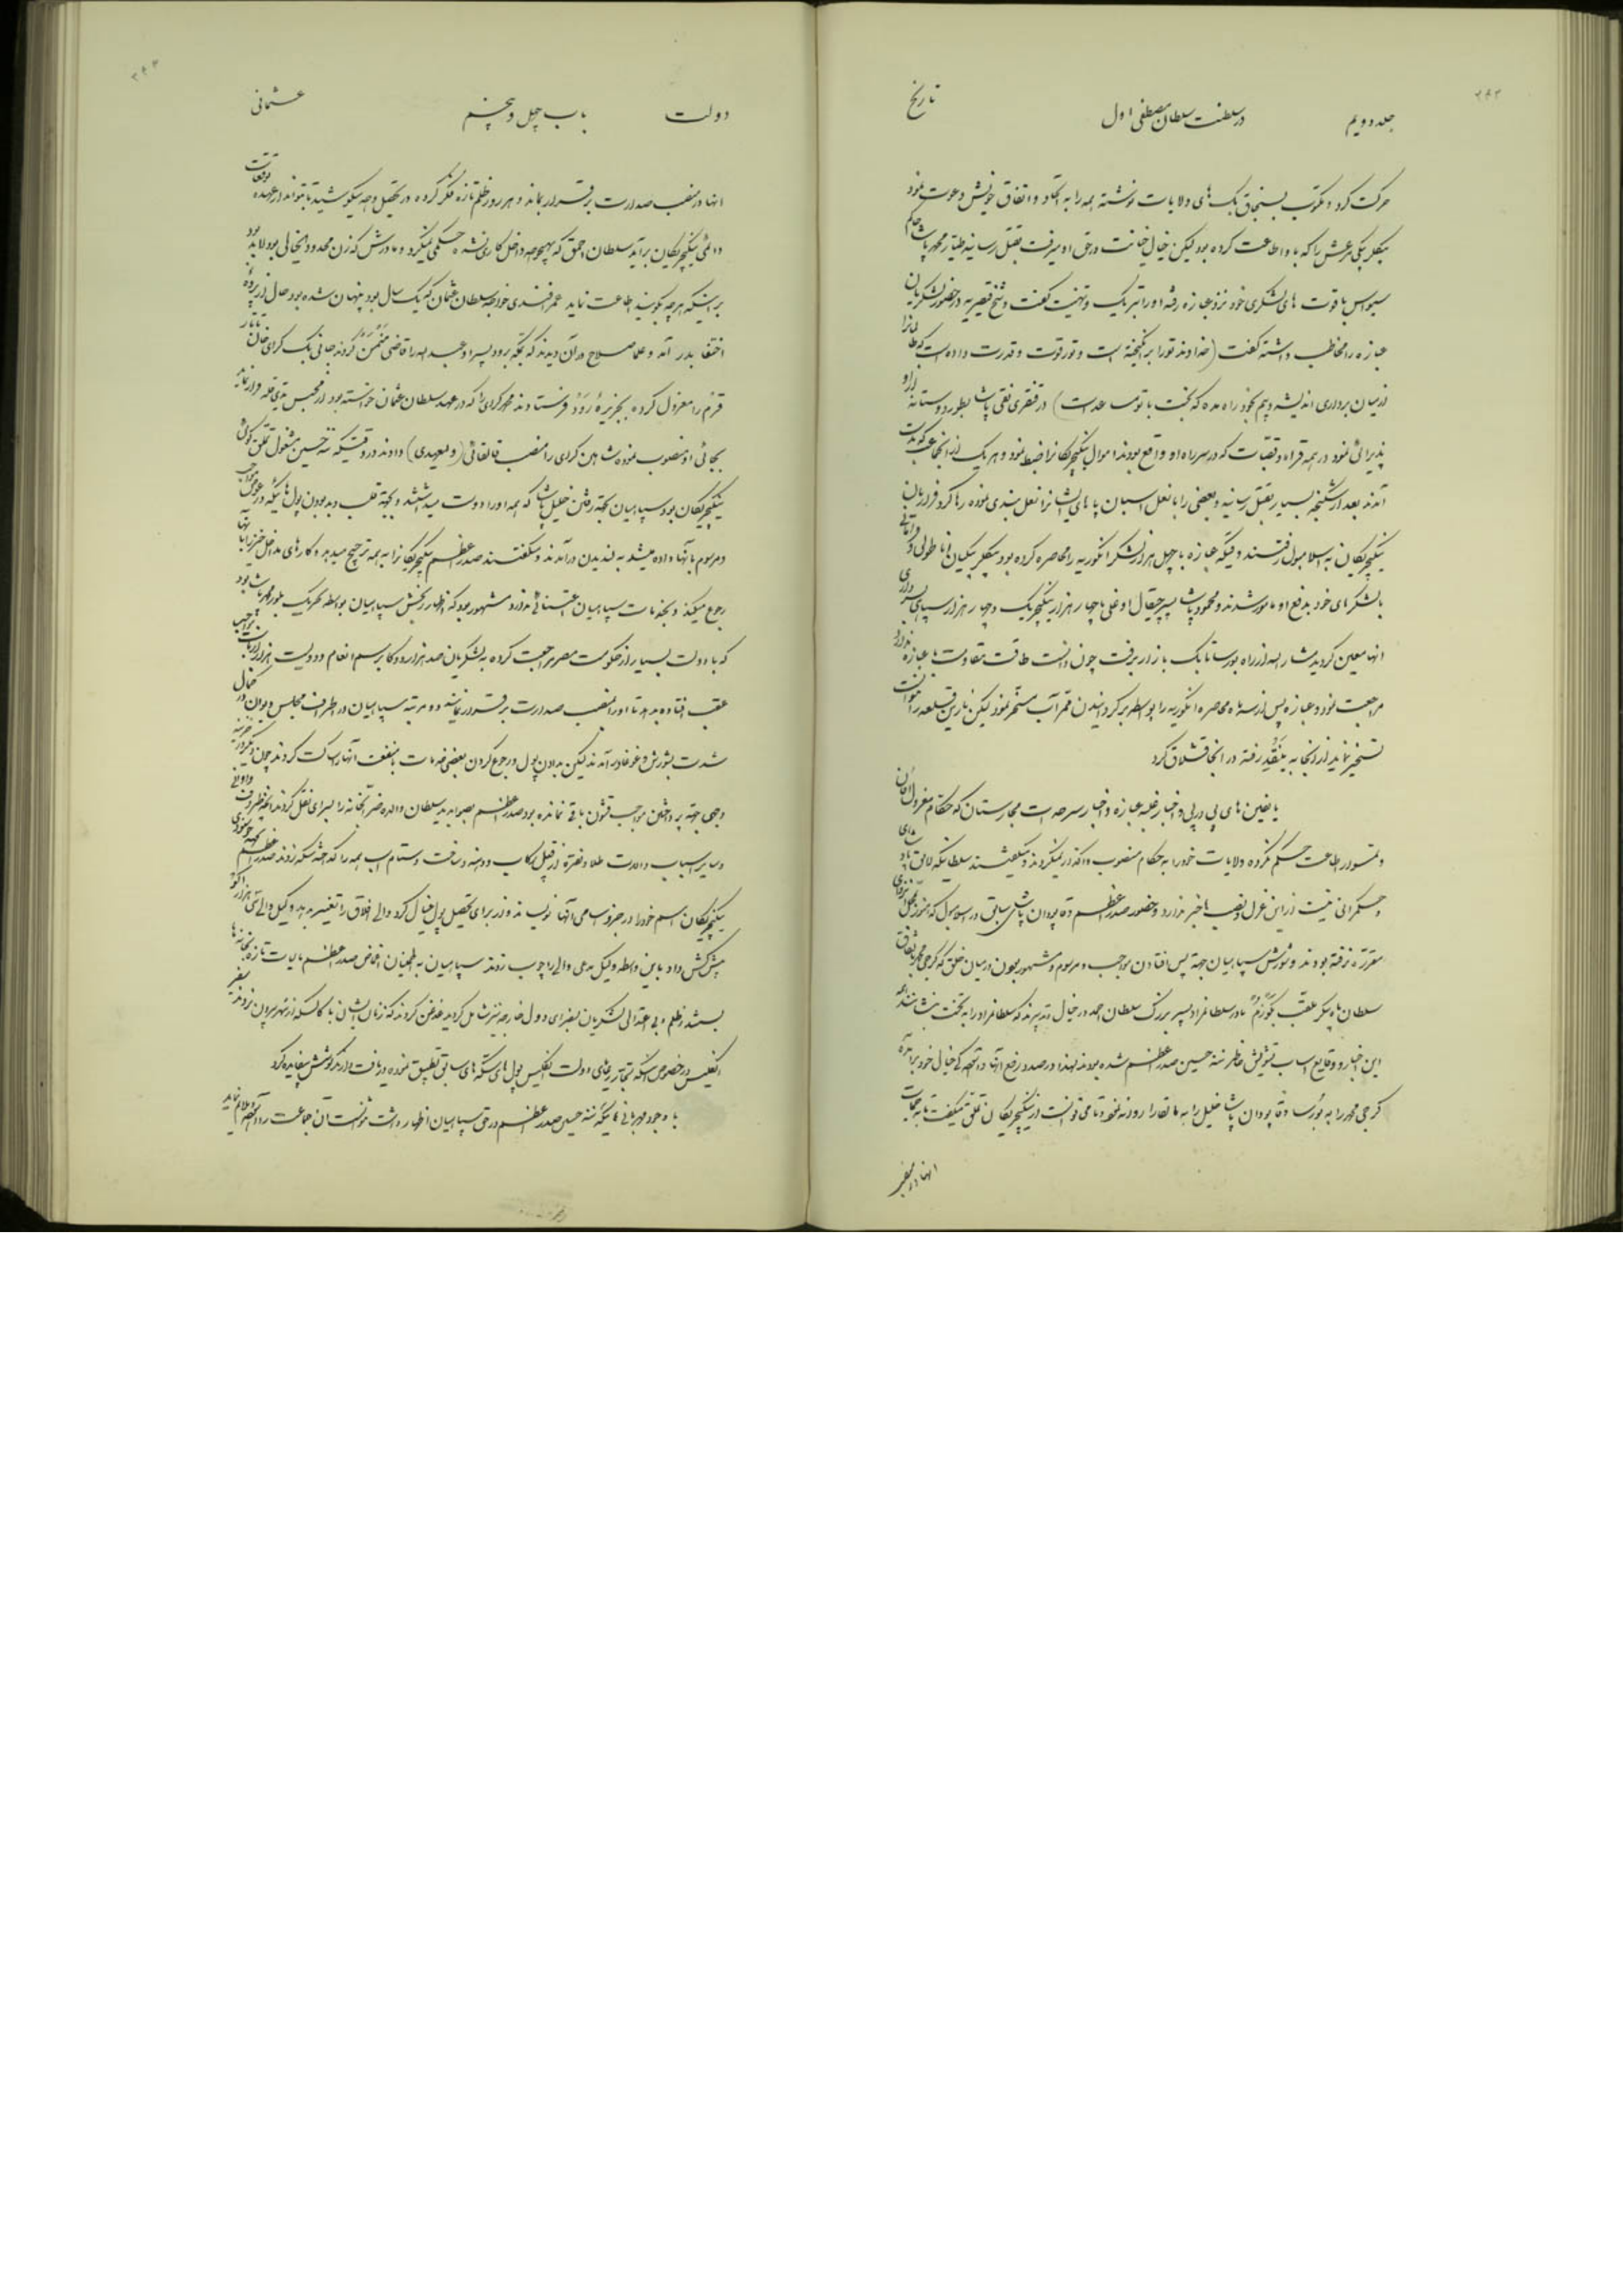 جلد دویم
در سلطنت سلطان مصطفی اول
تاریخ
حرکت کرد و مکتوب بسنجاق بک های ولایات نوشته همه را به اتحاد و اتفاق خویش دعوت نمود
بیکلر بیکی مرعش را که باو اطاعت کرده بود لیکن خیال خیانت در حق او میرفت بقتل رسانید طیار محمد پاشا حاکم
سیواس با قوت های لشکری خود نزد عبازه رفته او را تبریک و تهنیت گفت و شیخ قیصریه در حضور لشکریان
عبازه را مخاطب داشته گفت (خداوند تو را برانگیخته است و تو را قوت و قدرت داده است که ظالمانرا
از میان برداری اندیشه و بیم بخود راه مده که بخت با تو مساعد است) در
پذیرائی نمود در همه قراء و قصبات که در سر راه او واقع بودند اموال ینکیچریکانرا ضبط نمود و هر یک از آنجماعت که بدست
آمدند بعد از شکنجه بسیار بقتل رسانید و بعضی را با نعل اسبان پا های ایشانرا نعل بندی نموده رها کرد فراریان
ینکیچریکان به اسلامبول رفتند وقتیکه عبازه با چهل هزار لشکر انگوریه را محاصره کرده بود بیکلر بیکیان اناطولی و قرامانی
با لشکرهای خود بدفع او مأمور شدند و محمود پاشا پسر چیقال اوغلی با چهار هزار ینکیچریک و چهار هزار سپاهی بسرداری
آنها معین گردید مشارالیه از راه بورسا تا بک بازار برفت چون دانست طاقت مقاومت با عبازه ندارد
مراجعت نمود و عبازه پس از سه ماه محاصره انگوریه را بواسطه بر گردانیدن ممر آب مسخر نمود لیکن نارین قلعه را نتوانست
تسخیر نماید از آنجا به نیکده رفته در آنجا قشلاق کرد
یاغیین های پی در پی و اخبار غلبه عبازه و اخبار سرحدات مجارستان که حکام معزول
و دستور اطاعت حکم نکرده ولایات خود را به حکام منصوب واگذار نمیکردند و میگفتند سلطانیکه لایق پادشاهی
و حکمرانی نیست از این عزل و نصب ها خبر ندارد و حضور صدر اعظم و قاپودان پاشای سابق در اسلامبول که هنوز بمحل
مقرره نرفته بودند و شورش سپاهیان جهة پس افتادن مواجب و مرسوم و مشهور بودن در میان خلق که گرجی محمد پاشا باتفاق
سلطان ماه پیکر ملقب بکوزم مادر سلطان مراد پسر بزرگ سلطان احمد در خیال تدبیرند که سلطان مراد را به تخت بنشانند همه
این اخبار و وقایع اسباب تشویش خاطر مره حسین صدر اعظم شده بودند لهذا در صدد رفع آنها و آنچه که خیال خود بر آمده
گرجی محمد را به بورسا و قاپودان پاشا خلیل را به مالقارا روانه نمود و تا می توانست از ینکیچریکان تملق میگفت تا به حمایت
انها در منصب
دولت
باب چهل و پنجم
عثمانی
انها در منصب صدارت برقرار بماند و هر روز ظلم تازه فکر کرده در تحصیل وجه میکوشید تا بتواند از عهده توقعات
دائمی ینکیچریکان بر آید سلطان احمق که بهیچوجه داخل کاری نشده حکمی نمیکرد و مادرش که زن محدود الخیالی بود لابد بود
بر اینکه هر چه بگویند اطاعت نماید عمر افندی خواجه سلطان عثمان که یک سال بود پنهان شده بود حال از پرده
اختفا بدر آمد و علما صلاح در آن دیدند که بمکه برود پسر او عبدالله را قاضی کردند جانی بک کرای خان تاتار
قرم را معزول کرده بجزیره رودس فرستادند محمد کرای را که در عهد سلطان عثمان خواسته بود از محبس یدی قله فرار نماید
بجای او منصوب نموده شاهین کرای را منصب قالغائی (ولیعهدی) دادند در وقتیکه مره حسین مشغول تملق گوئی
ینکیچریکان بود سپاهیان بجهة رفتن خلیل پاشا که همه او را دوست میداشتند و بجهة قلب و بد بودن پول هائیکه در عوض مواجب
و مرسوم بآنها داده میشد به لندیدن در آمدند و میگفتند صدر اعظم ینکیچریکانرا به همه ترجیح میدهد و کارهای مداخل خیز را بآنها
رجوع میکند و بخدمات سپاهیان اعتنائی ندارد مشهور بود که اظهار رنجش سپاهیان بواسطه تحریک بلور محمد پاشا بود
که با دولت بسیار از حکومت مصر مراجعت کرده به لشکریان صد هزار دوکا برسم انعام و دویست هزار از بابت مواجب
عقب افتاده بدهد تا او را منصب صدارت برقرار نمایند دو مرتبه سپاهیان در اطراف مجلس دیوان در کمال
شدت بشورش و غوغا در آمدند لیکن بدادن پول و رجوع کردن بعضی خدمات با منفعت آنها را ساکت کردند چون دیگر در خزینه
وجهی جهة پرداختن مواجب قشون باقی نمانده بود صدر اعظم بصوابدید سلطان والده ضرابخانه را بسرای نقل کردند آنچه ظروف
و سایر اسباب و ادوات طلا و نقره از قبیل رکاب و دهنه و یافت و ستام اسب همه را گداخته سکه زدند صدر اعظم بجهة خوشنودی
ینکیچریکان اسم خود را در جزو اسامی آنها نوشت و نیز برای تحصیل پول خیال کرد والی افلاق را تغییر بدهد وکیل والی سی هزار اکو
پیش کش داد باین واسطه وکیل مدعی والی را چوب زدند سپاهیان به اطمینان اغماض صدر اعظم مالیات تازه بمیخانه ها
بستند ظلم و بی اعتدالی لشکریان بسفرای دول خارجه نیز شامل گردید قدغن کردند که زنان ایشان با کالسکه از شهر بیرون نروند سفیر
انگلیس در خصوص اینکه تجار رعیای دولت انگلیس پول های سکه های سابق تطبیق نموده دریافت دارند کوشش بیفایده کرد
با وجود مهربانی هائیکه مره حسین صدر اعظم در حق سپاهیان اظهار داشت نتوانست آن جماعت را آسوده و ملایم نماید